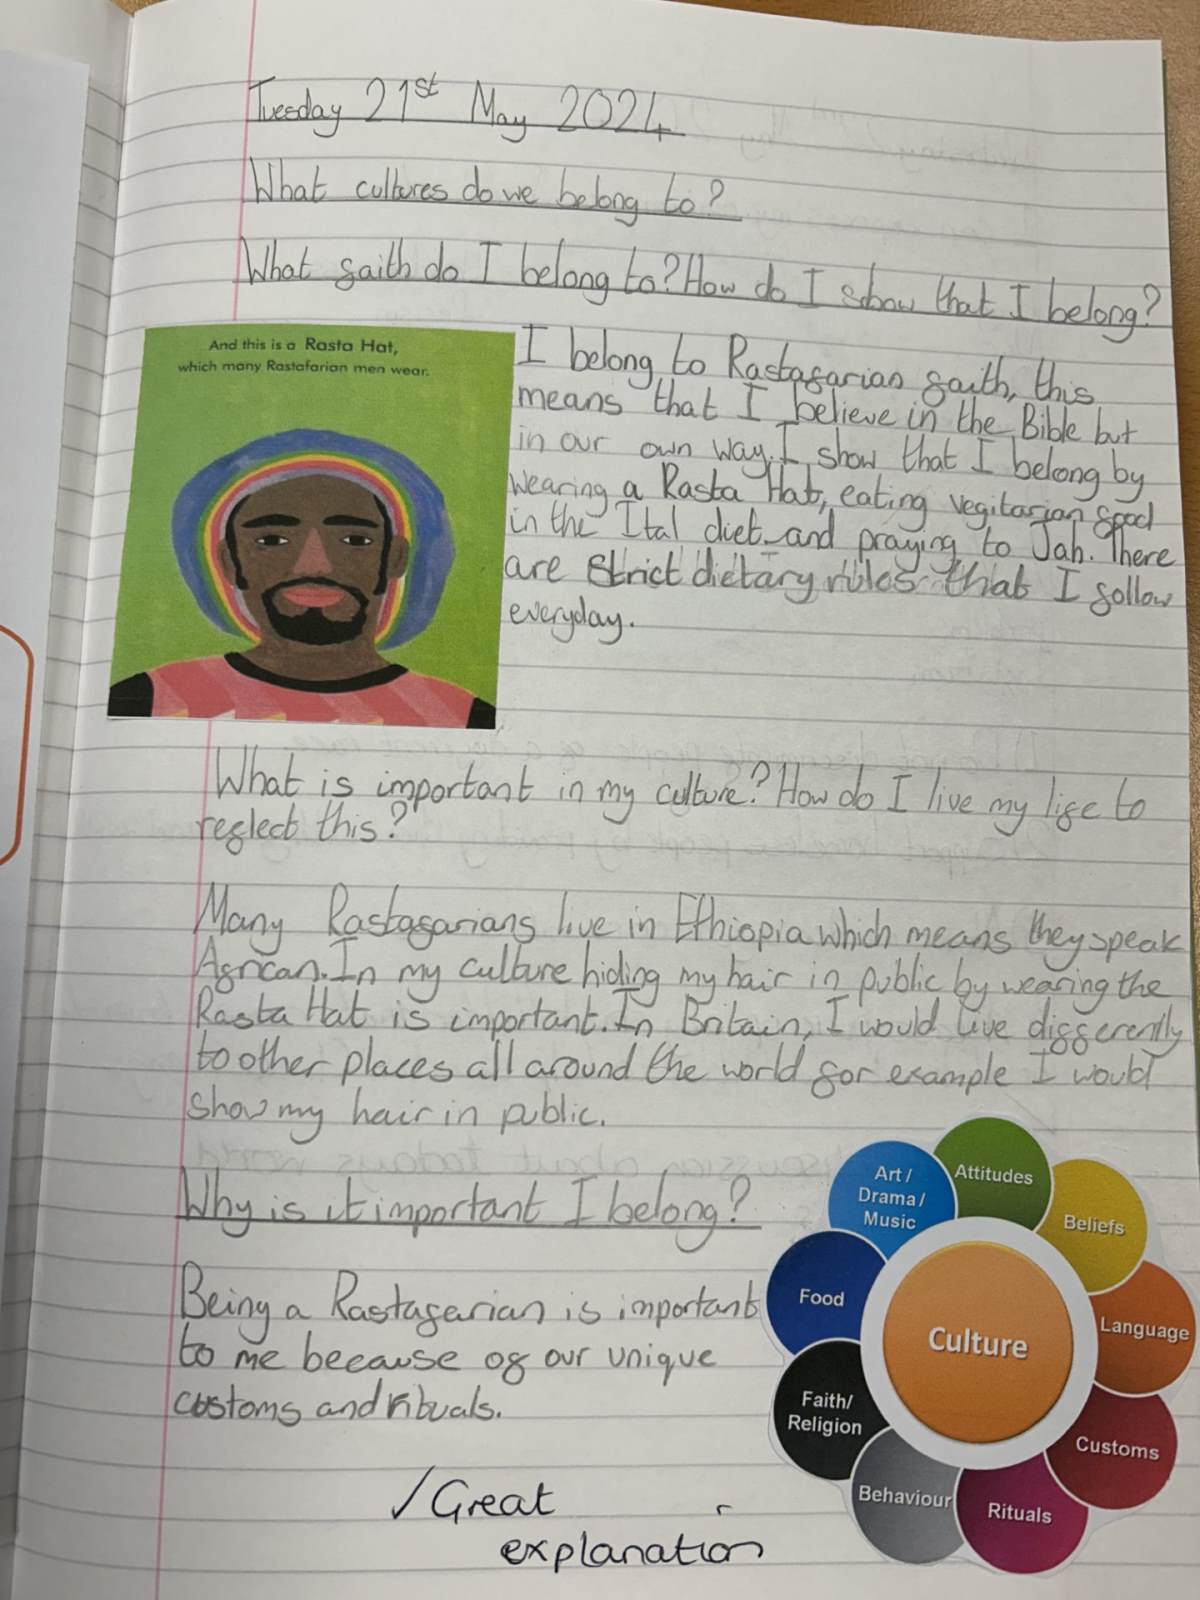 Tuesday 21st May 2024
What cultures do we belong to?
What faith do I belong to? How do I show that I belong?
And this is a Rasta Hat,
which many Rastafarian men wear.
I belong to Rastafarian faith, this
means that I believe in the Bible but
in our own way. I show that I belong by
wearing a Rasta Hat, eating vegitarian food
in the Ital diet and praying to Jah. There
are strict dietary rules that I follow
everyday.
What is important in my culture? How do I live my life to
reflect this?
Many Rastafarians live in Ethiopia which means they speak
African. In my culture hiding my hair in public by wearing the
Rasta Hat is important. In Britain, I would live differently
to other places all around the world for example I would
show my hair in public.
Why is it important I belong?
Being a Rastaferian is important
to me because of our unique
customs and rituals.
✓ Great
explanation
Culture
Attitudes
Beliefs
Language
Customs
Rituals
Behaviour
Faith/
Religion
Food
Art /
Drama /
Music